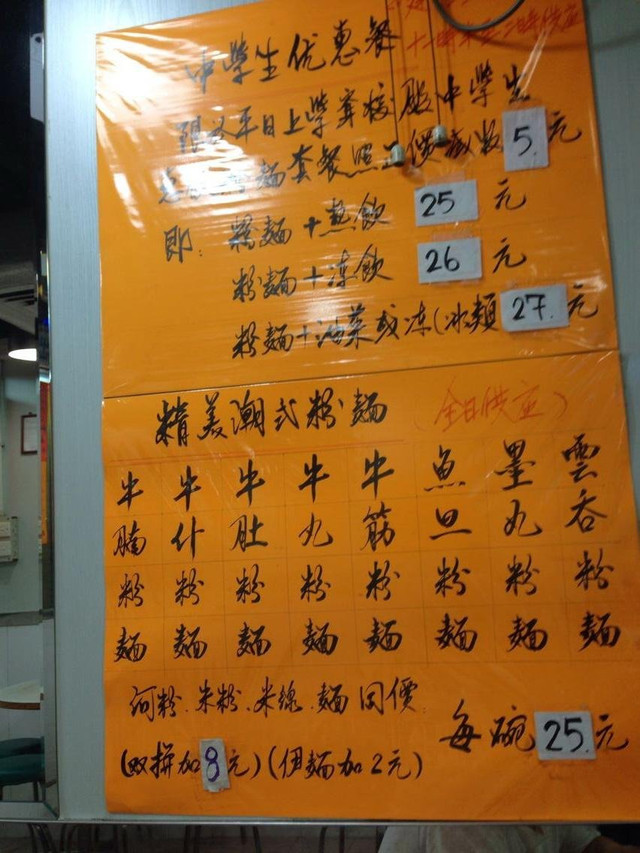 中學生优惠餐
十二時半至二時供应
平日上學穿校服中學生
麵套餐照正價減收5.元
即:粉麵+热飲 25 元
粉麵+凍飲 26 元
粉麵+油菜或冻(冰類 27.元
精美潮式粉麵(全日供应)
牛腩粉麵
牛什粉麵
牛肚粉麵
牛丸粉麵
牛筋粉麵
魚旦粉麵
墨丸粉麵
雲吞粉麵
河粉.米粉.米線.麵同價
每碗25.元
(双拼加8元)(伊麵加2元)